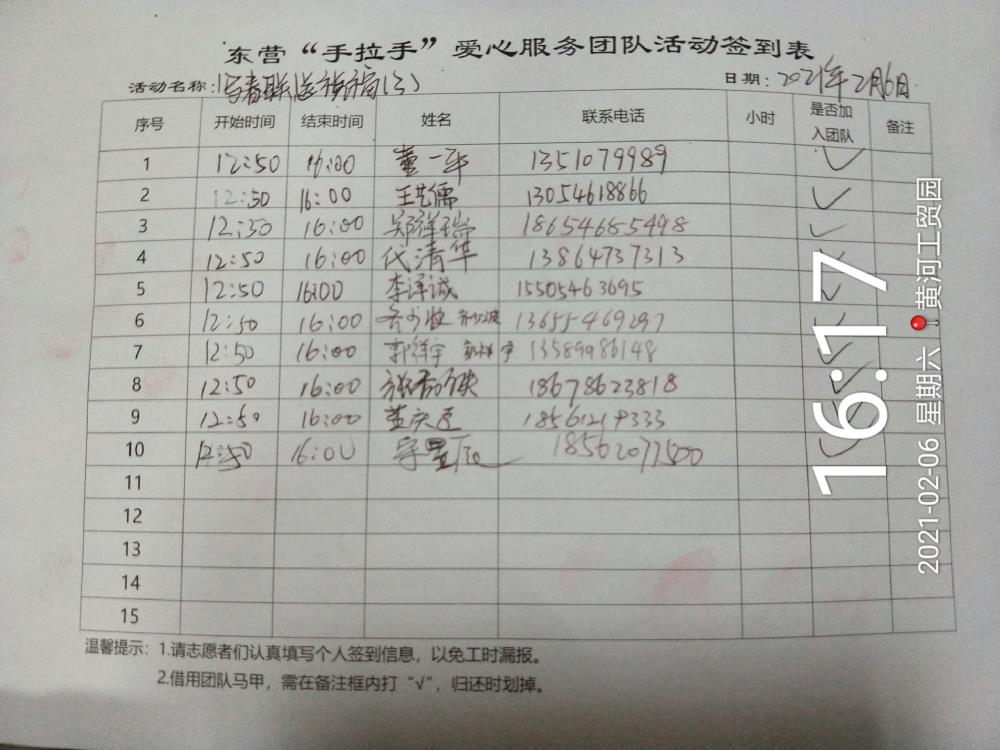 东营“手拉手”爱心服务团队活动签到表
活动名称：写春联送祝福(三) 日期：2021年2月6日
序号 开始时间 结束时间 姓名 联系电话 小时 是否加入团队 备注
1 12:50 16:00 董一平 1351079989 ✓
2 12:50 16:00 王艺儒 13054618866 ✓
3 12:50 16:00 郑祥瑞 18654685498 ✓
4 12:50 16:00 代清华 13864737313 ✓
5 12:50 16:00 李泽诚 15505463695 ✓
6 12:50 16:00 13655469297 ✓
7 12:50 16:00 郭祥宇 郭祥宇 13589986148 ✓
8 12:50 16:00 18678623818 ✓
9 12:50 16:00 18561219333 ✓
10 12:50 16:00 18562077500 ✓
11
12
13
14
15
温馨提示：1.请志愿者们认真填写个人签到信息，以免工时漏报。
2.借用团队马甲，需在备注框内打“√”，归还时划掉。
16:17
2021-02-06 星期六 黄河工贸园